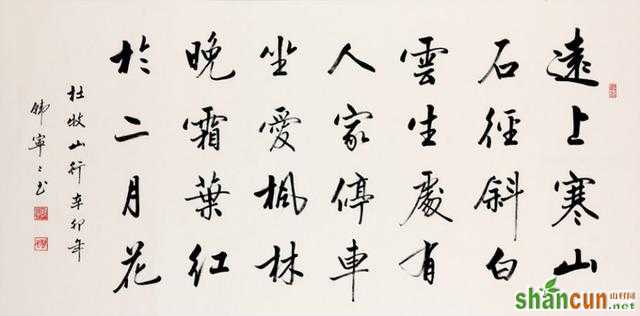 遠上寒山
石徑斜白
雲生處有
人家停車
坐愛楓林
晚霜葉紅
於二月花
杜牧山行辛卯年
韩寧〻书
shancun
山村网
.net